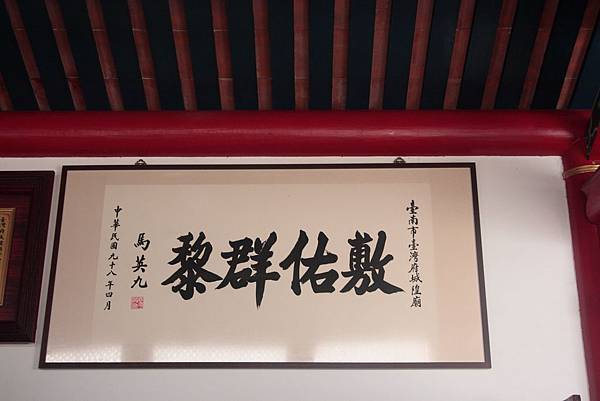 臺南市臺灣府城隍廟
敷佑群黎
馬英九
中華民國九十八年四月